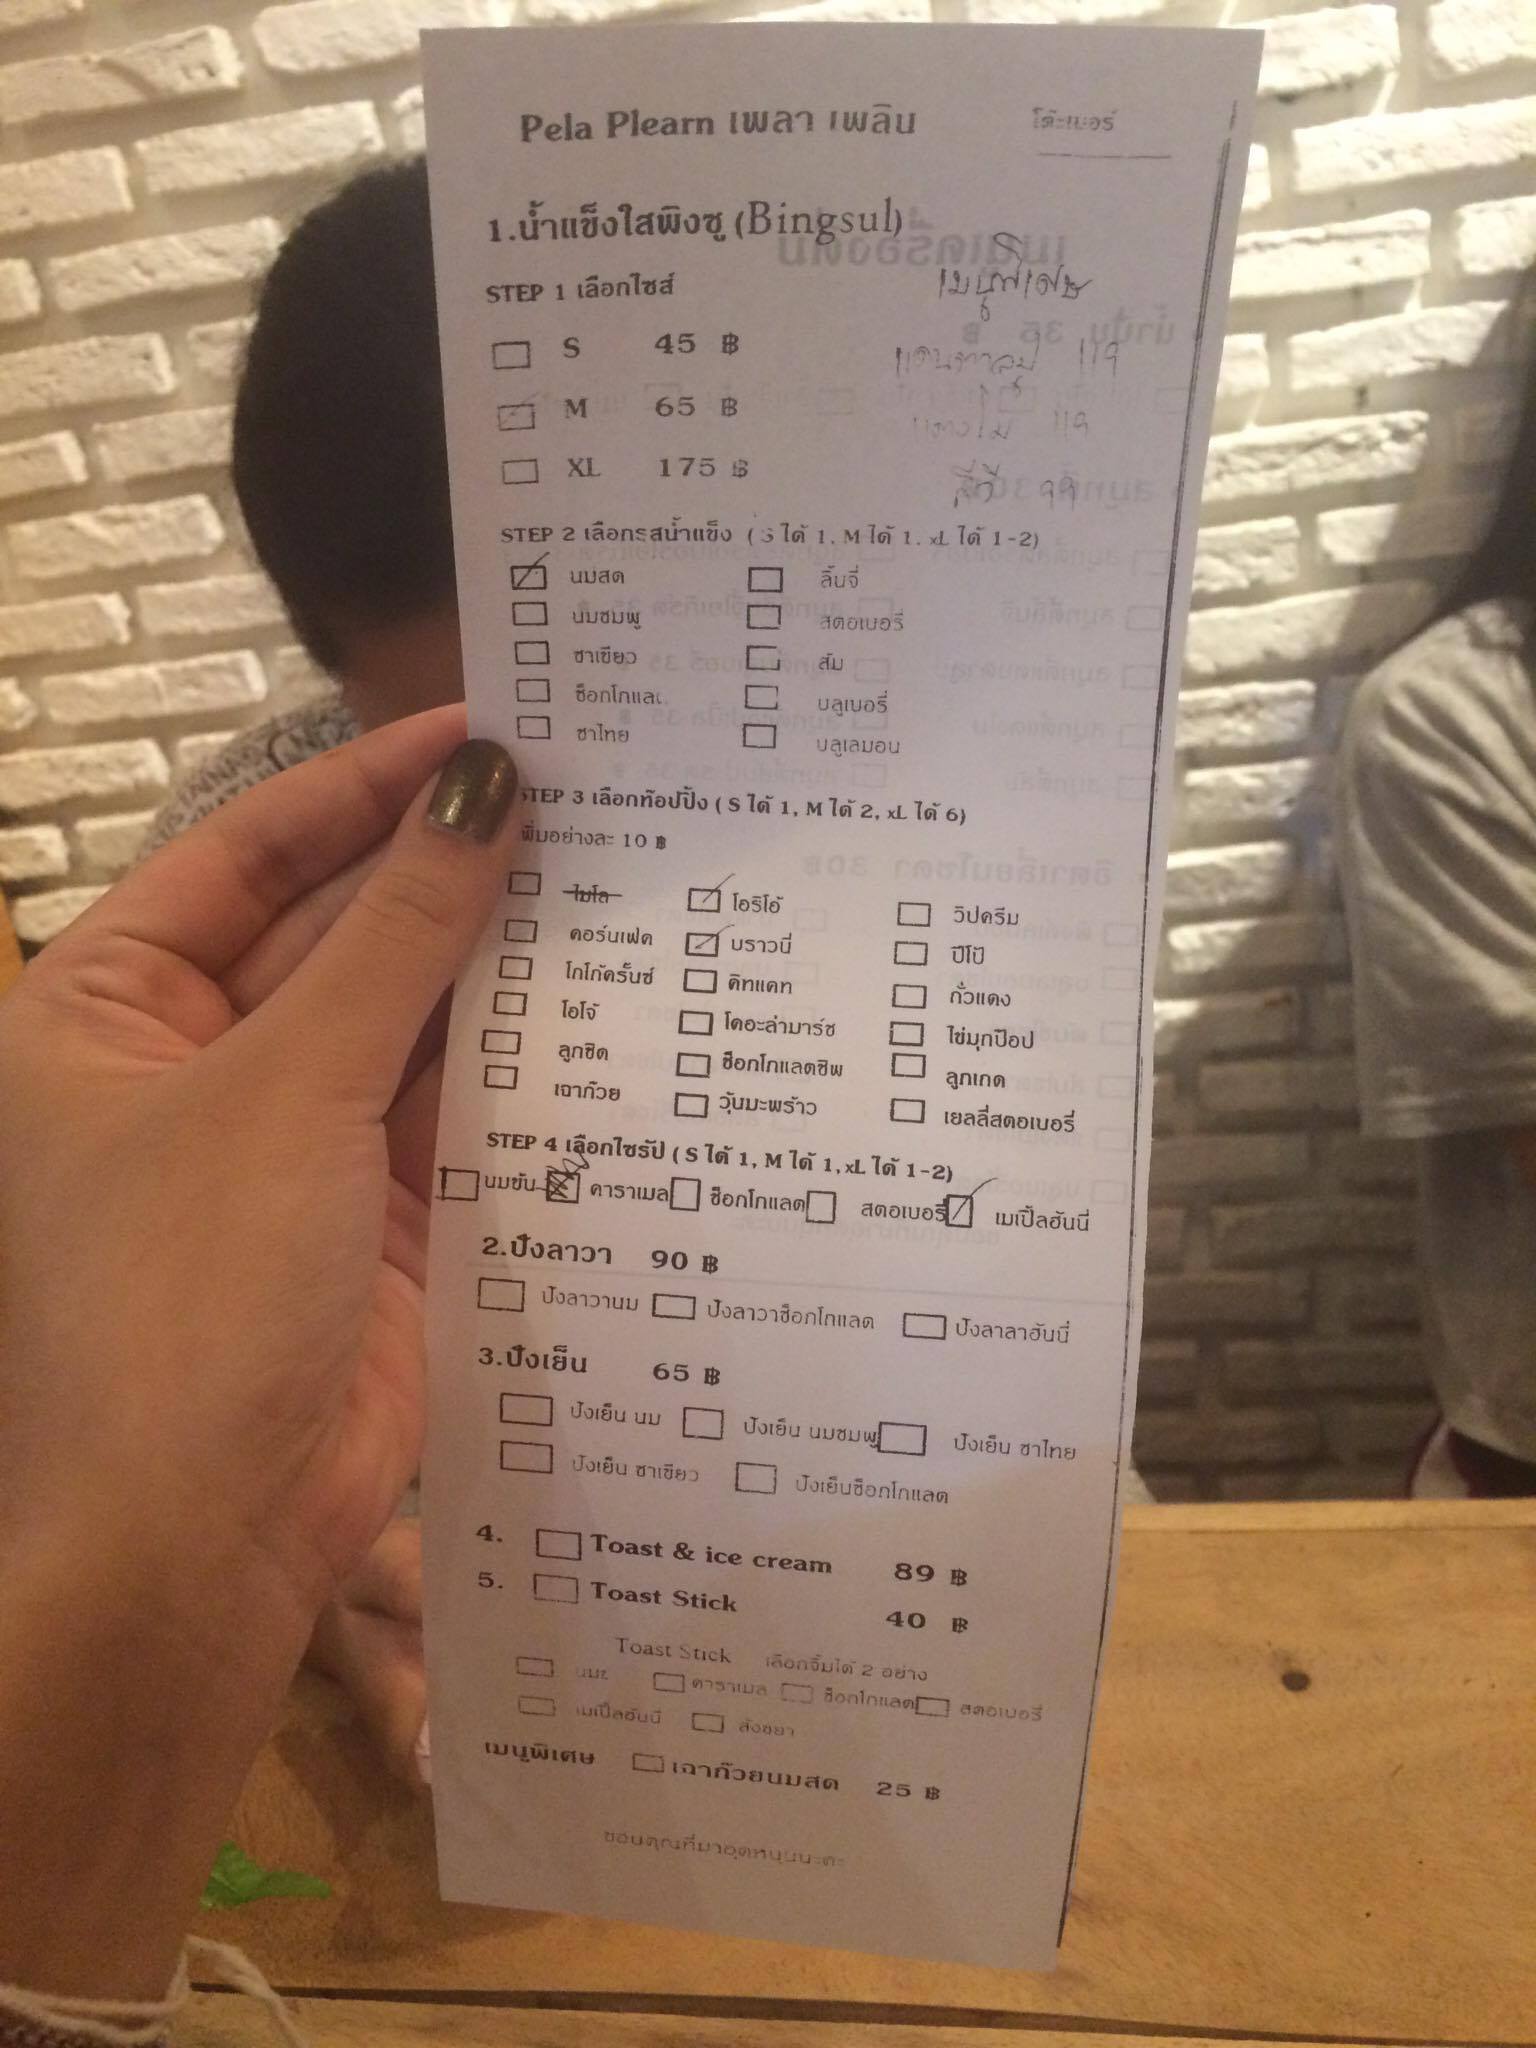 Pela Plearn เพลา เพลิน
โต๊ะเบอร์
1.น้ำแข็งใสพิงซู (Bingsul)
เมนูพิเศษ
STEP 1 เลือกไซส์
S 45 ฿
แคนตาลูป 119
M 65 ฿
แตงโม 119
XL 175 ฿
กีวี 99
STEP 2 เลือกรสน้ำแข็ง ( S ได้ 1, M ได้ 1, xL ได้ 1-2)
นมสด ลิ้นจี่
นมชมพู สตอเบอรี่
ชาเขียว ส้ม
ช็อกโกแลต บลูเบอรี่
ชาไทย บลูเลมอน
STEP 3 เลือกท๊อปปิ้ง ( S ได้ 1, M ได้ 2, xL ได้ 6)
เพิ่มอย่างละ 10 ฿
ไมโล โอริโอ้ วิปครีม
คอร์นเฟค บราวนี่ ปีโป้
โกโก้ครั้นซ์ คิทแคท ถั่วแดง
โอโจ้ โคอะล่ามาร์ช ไข่มุกป๊อป
ลูกชิด ช็อกโกแลตชิพ ลูกเกด
เฉาก๊วย วุ้นมะพร้าว เยลลี่สตอเบอรี่
STEP 4 เลือกไซรัป ( S ได้ 1, M ได้ 1, xL ได้ 1-2)
นมข้น คาราเมล ช็อกโกแลต สตอเบอรี่ เมเปิ้ลฮันนี่
2.ปังลาวา 90 ฿
ปังลาวานม ปังลาวาช็อกโกแลต ปังลาลาฮันนี่
3.ปังเย็น 65 ฿
ปังเย็น นม ปังเย็น นมชมพู ปังเย็น ชาไทย
ปังเย็น ชาเขียว ปังเย็นช็อกโกแลต
4. Toast & ice cream 89 ฿
5. Toast Stick 40 ฿
Toast Stick เลือกจิ้มได้ 2 อย่าง
คาราเมล ช็อกโกแลต สตอเบอรี่
เมเปิ้ลฮันนี่ สังขยา
เมนูพิเศษ เฉาก๊วยนมสด 25 ฿
ขอบคุณที่มาอุดหนุนนะคะ